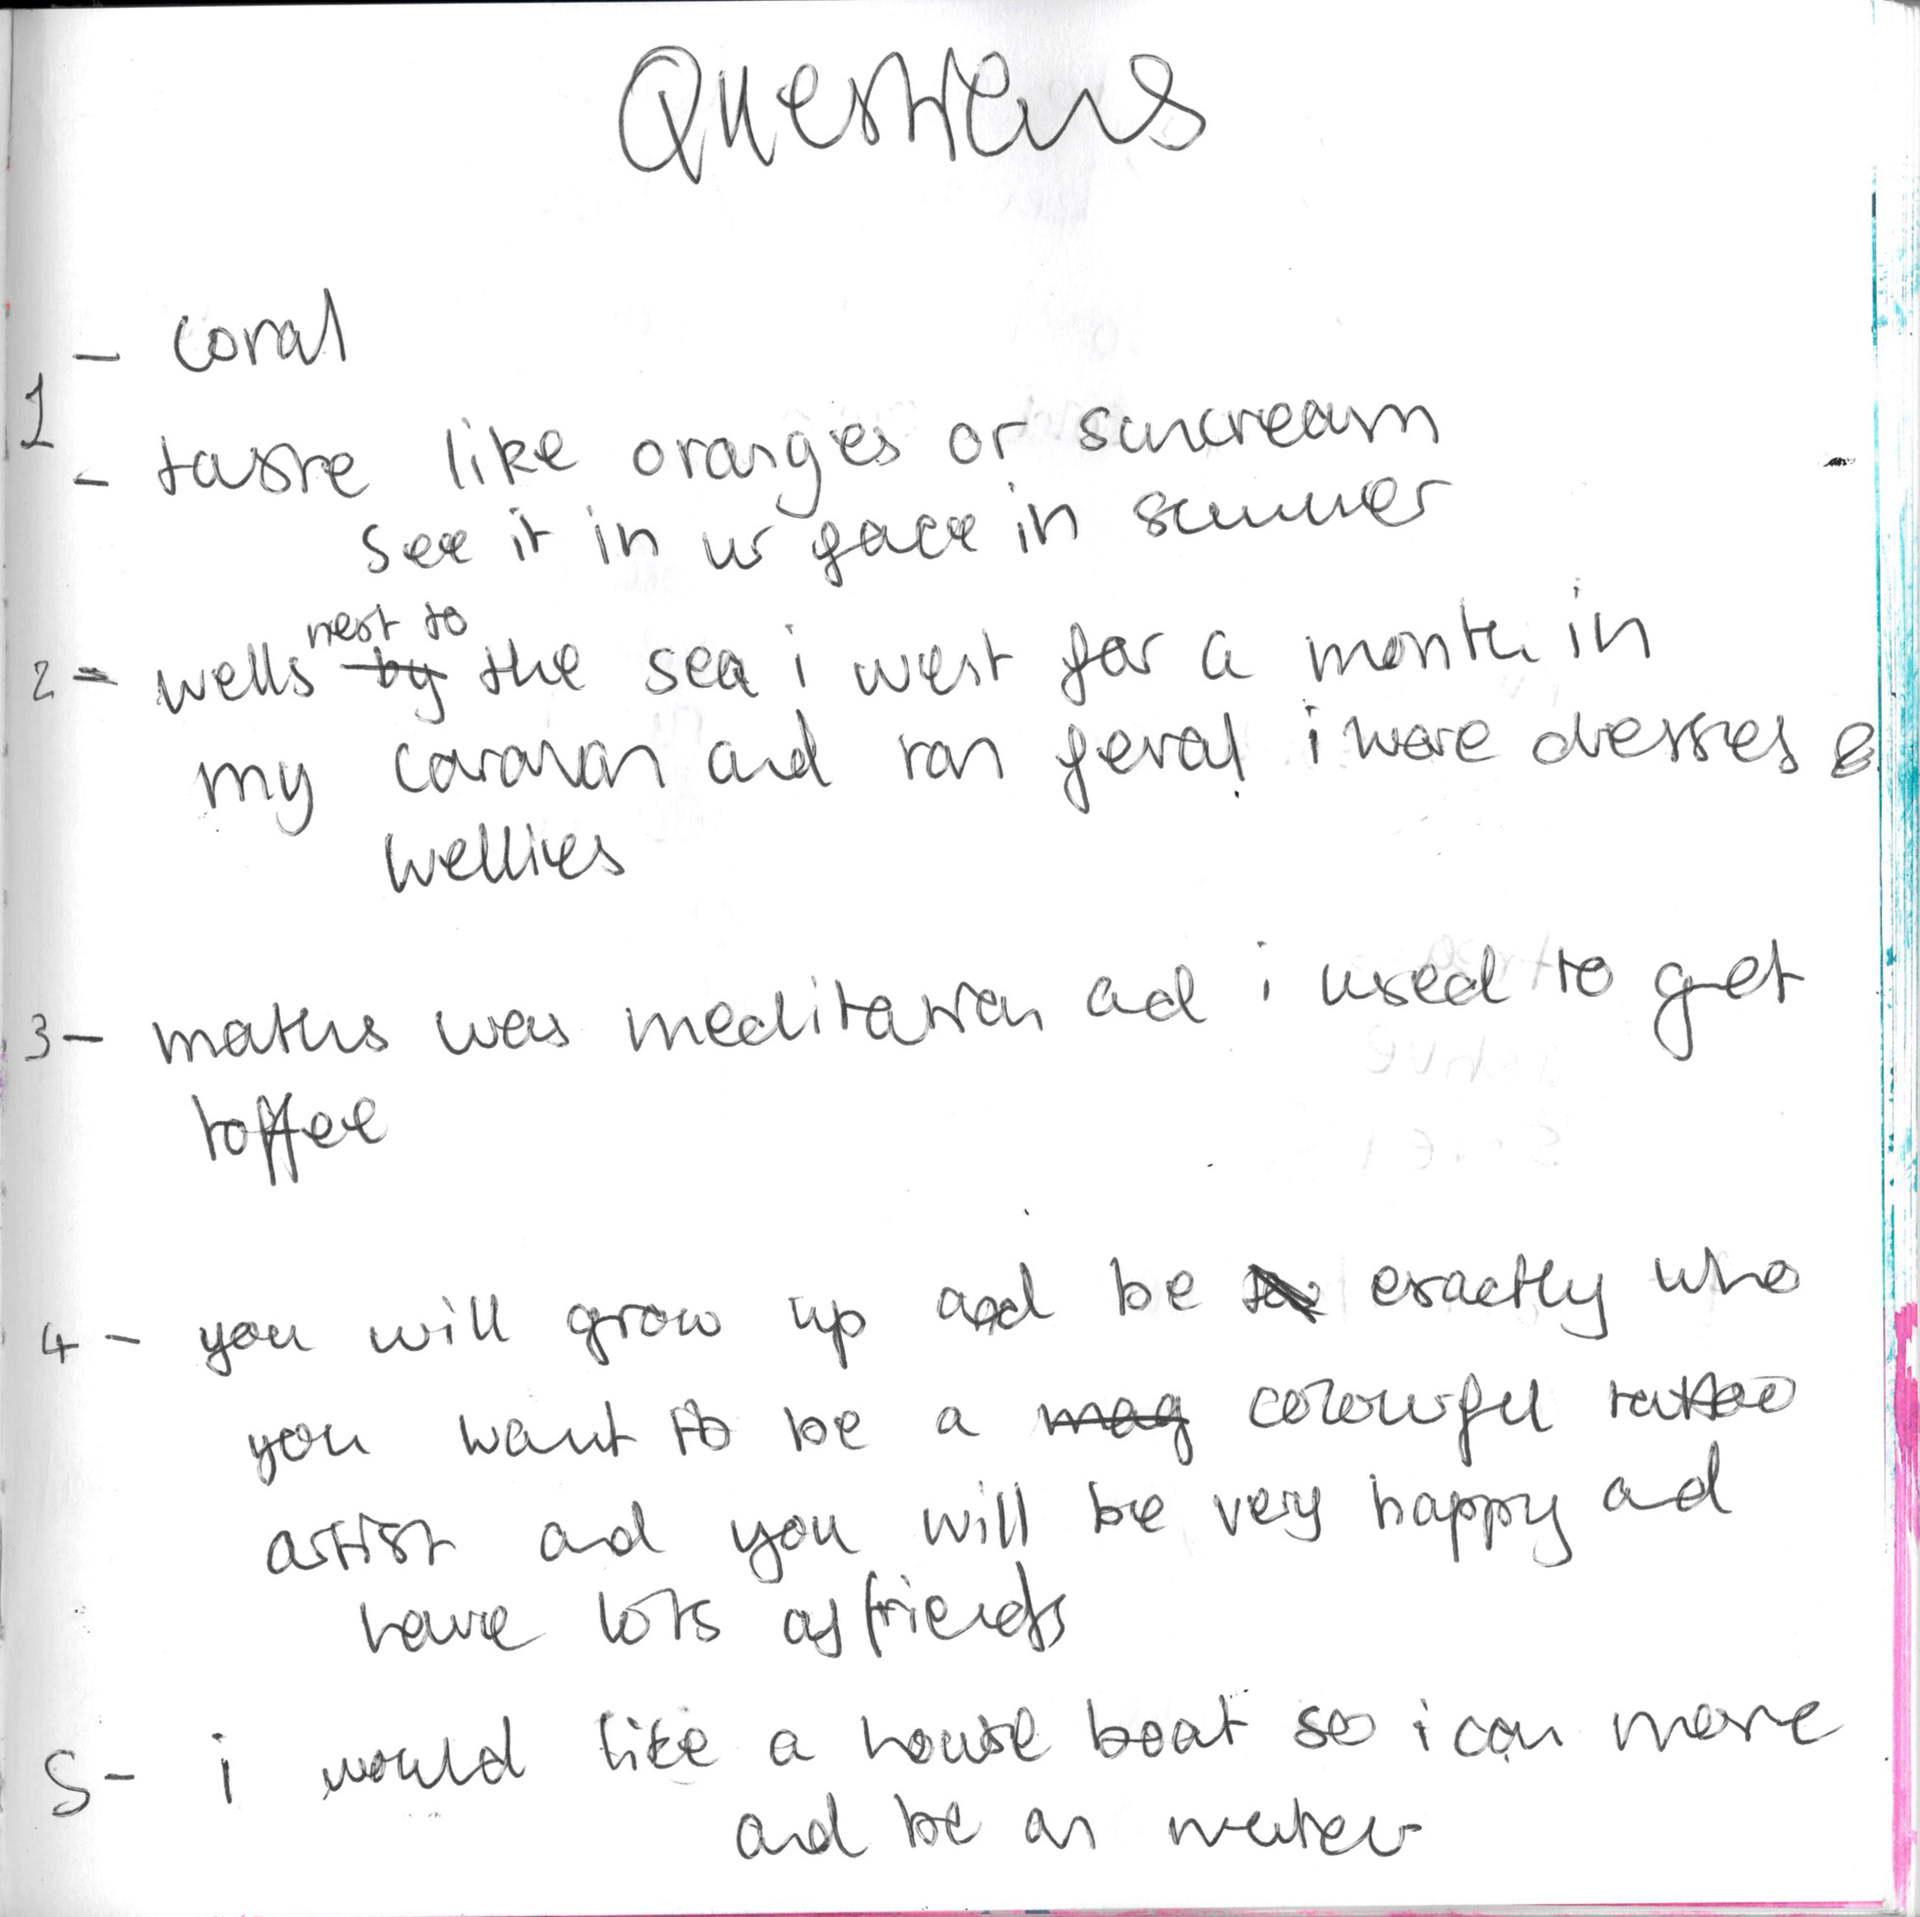 Questions
- coral
1
- taste like oranges or suncream
see it in ur face in summer
next to
2 - wells by the sea i went for a month in
my caravan and ran feral i wore dresses &
wellies
3 - maths was meditation ad i used to get
toffee
4 - you will grow up and be exactly who
you want to be a mag colourful tattoo
artist and you will be very happy ad
have lots of friends
5 - i would like a house boat so i can move
and be on water